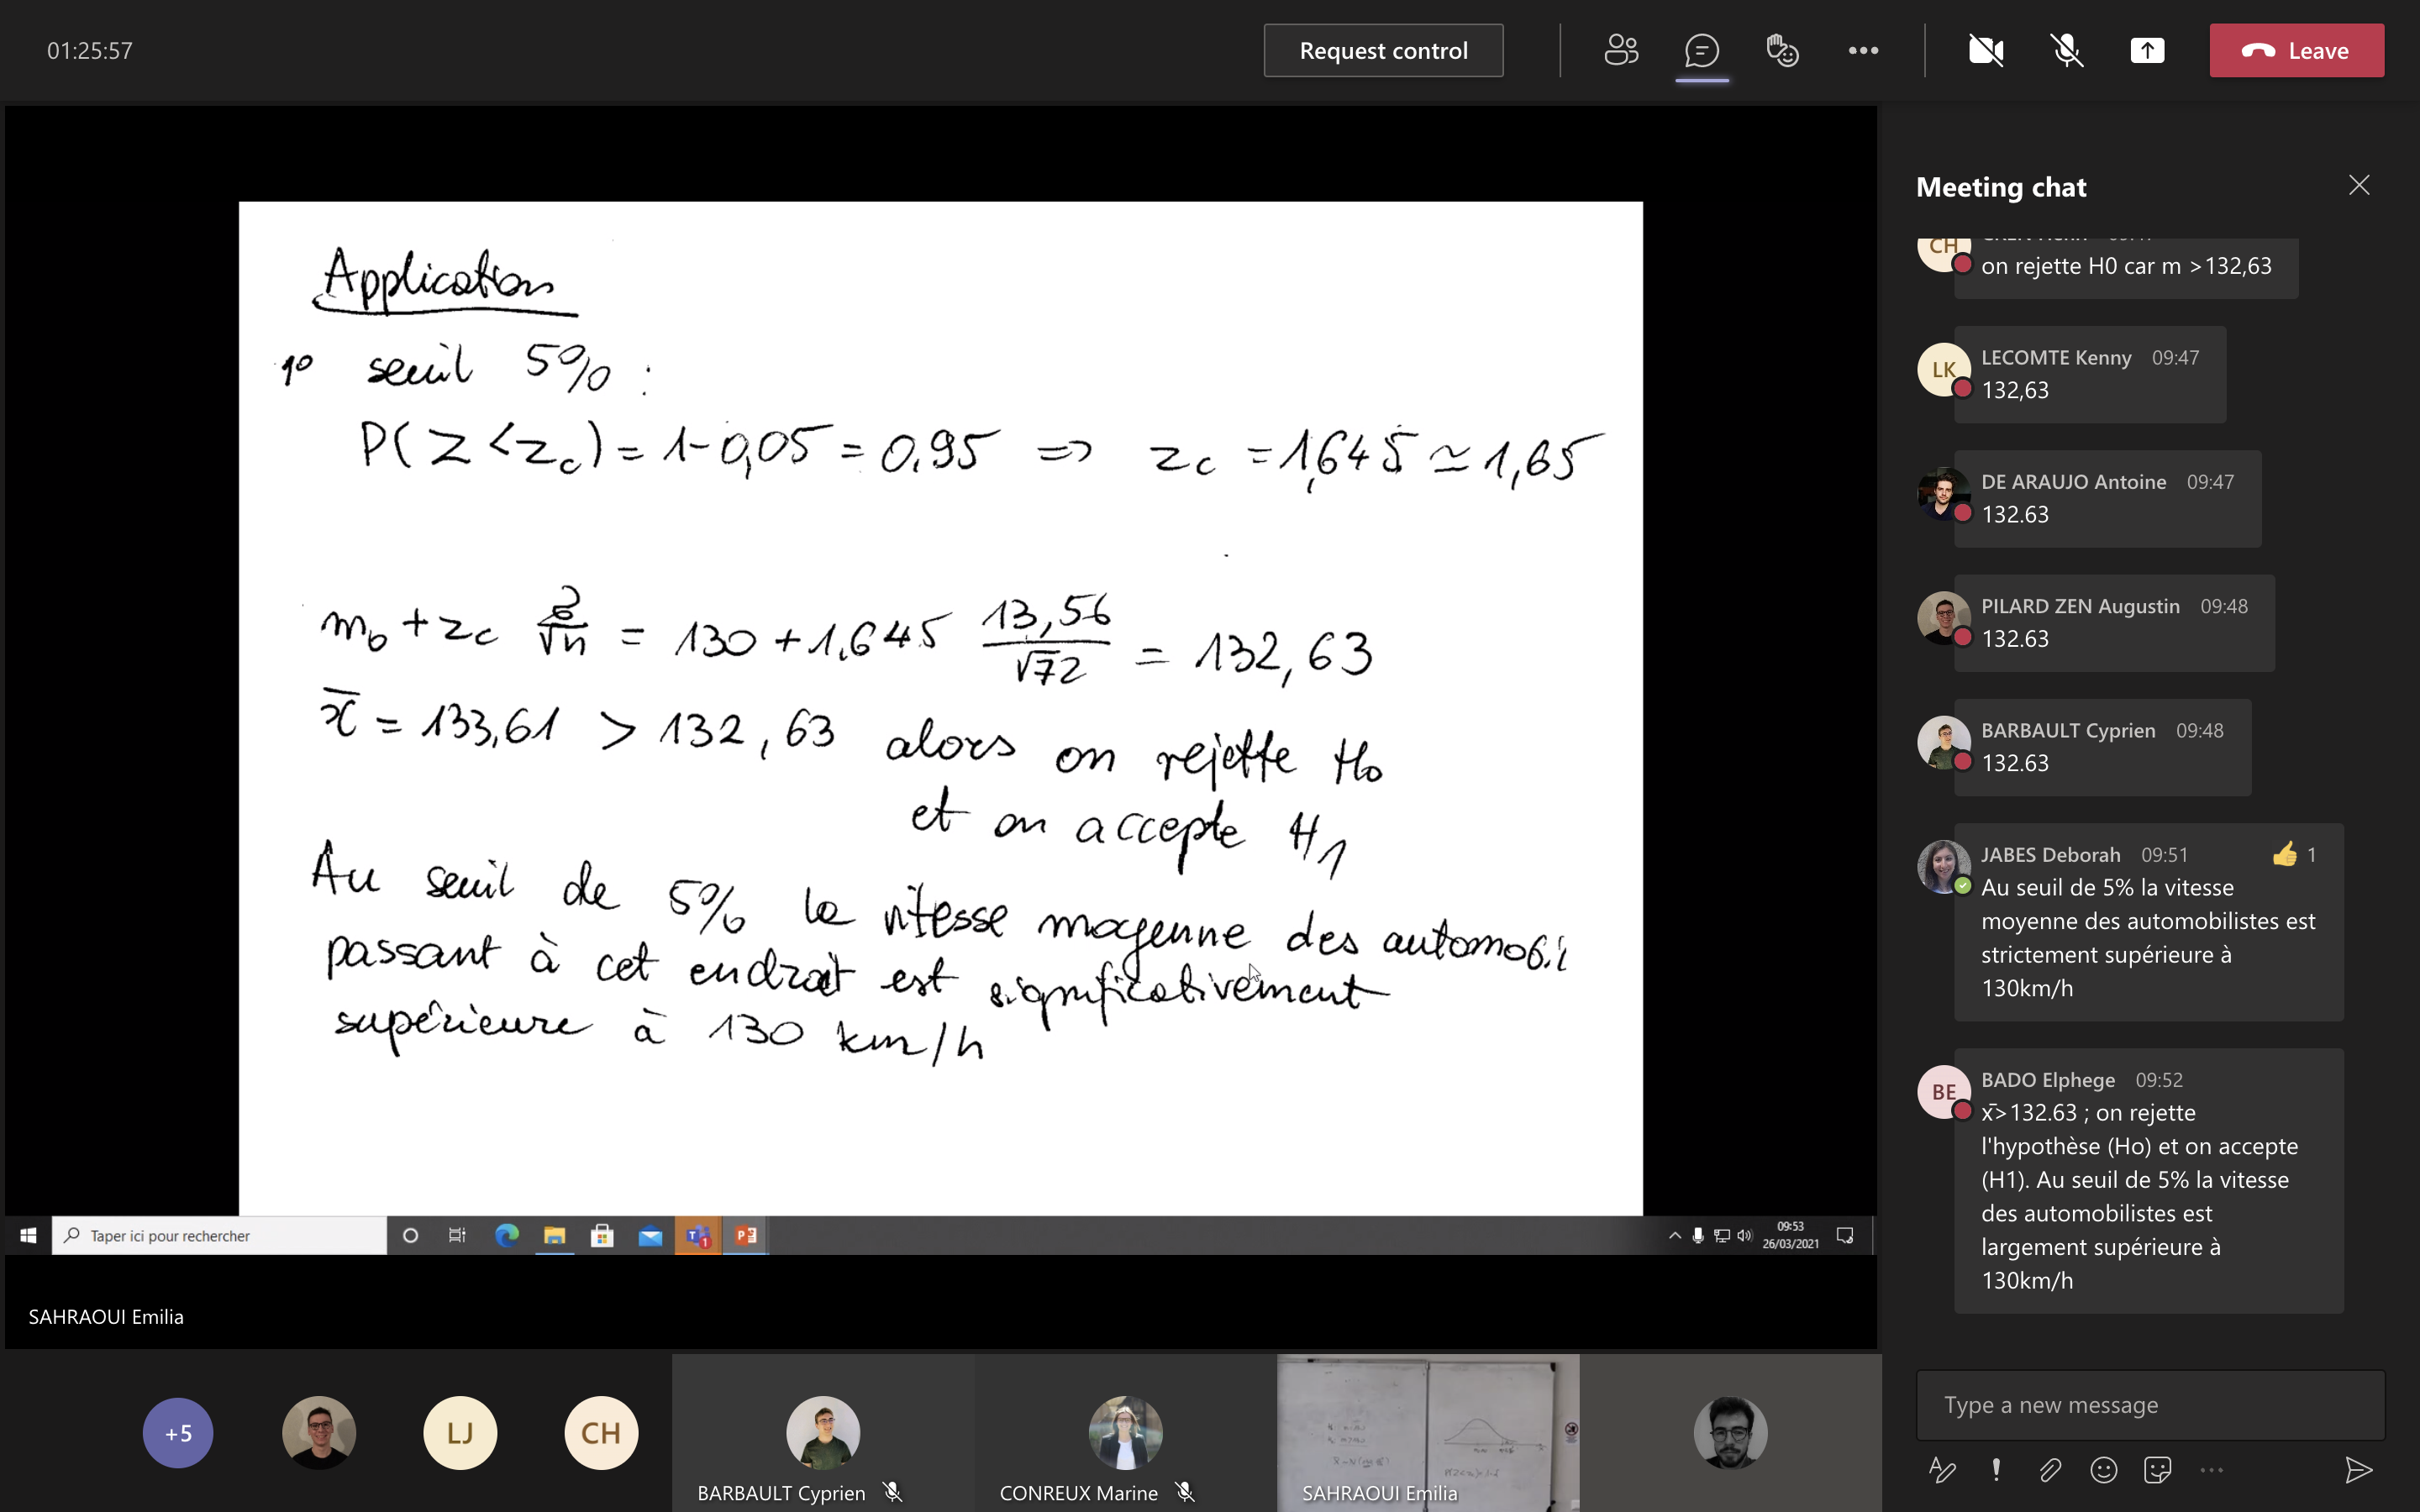 01:25:57
Request control
Leave
Application
1° seuil 5% :
P(Z < zc) = 1 - 0,05 = 0.95 => zc = 1,645 ≃ 1,65
= 130 + 1,645 13,56/√72 = 132,63
x̄ = 133,61 > 132,63 alors on rejette H0
et on accepte H1
Au seuil de 5% la vitesse moyenne des automobi
passant à cet endroit est significativement
supérieure à 130 km/h
Taper ici pour rechercher
09:53
26/03/2021
SAHRAOUI Emilia
+5
LJ
CH
BARBAULT Cyprien
CONREUX Marine
SAHRAOUI Emilia
Meeting chat
CH
on rejette H0 car m >132,63
LK
LECOMTE Kenny 09:47
132,63
DE ARAUJO Antoine 09:47
132.63
PILARD ZEN Augustin 09:48
132.63
BARBAULT Cyprien 09:48
132.63
JABES Deborah 09:51 👍 1
Au seuil de 5% la vitesse
moyenne des automobilistes est
strictement supérieure à
130km/h
BE
BADO Elphege 09:52
x̄>132.63 ; on rejette
l'hypothèse (Ho) et on accepte
(H1). Au seuil de 5% la vitesse
des automobilistes est
largement supérieure à
130km/h
Type a new message